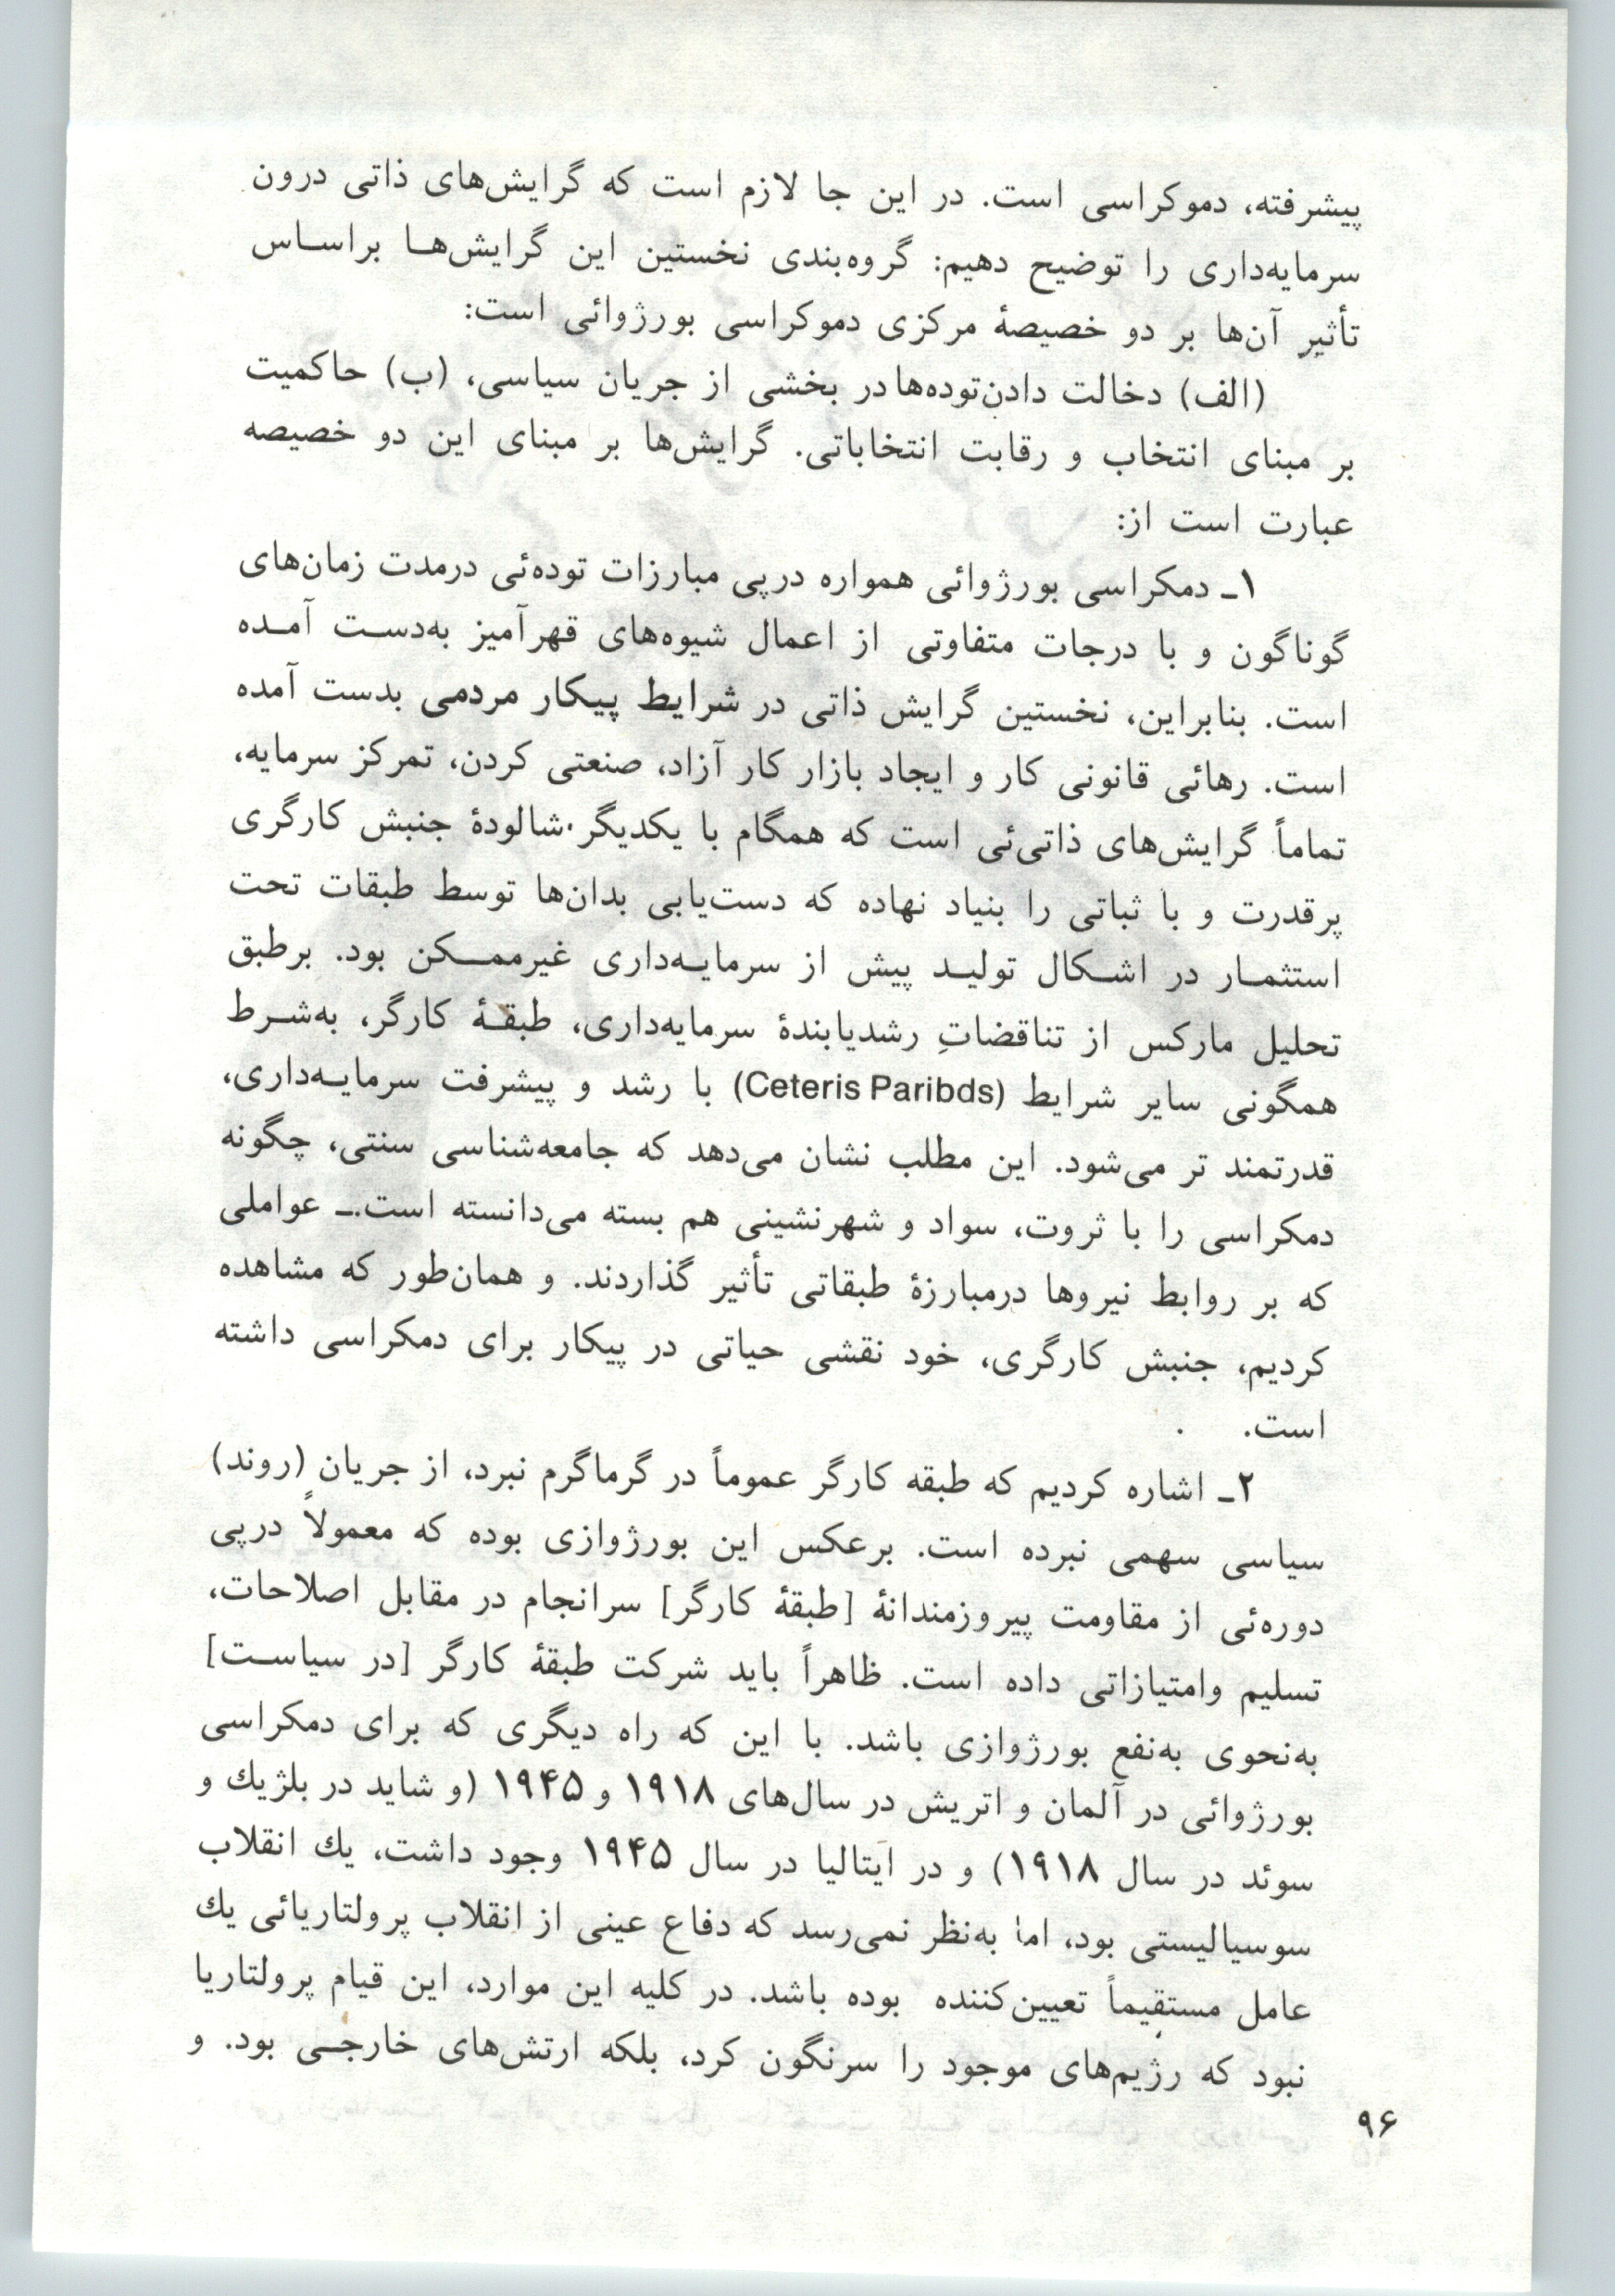 پیشرفته، دموکراسی است. در این جا لازم است که گرایش‌های ذاتی درون
سرمایه‌داری را توضیح دهیم: گروه‌بندی نخستین این گرایش‌هـا براسـاس
تأثیر آن‌ها بر دو خصیصهٔ مرکزی دموکراسی بورژوائی است:
(الف) دخالت دادن‌توده‌ها در بخشی از جریان سیاسی، (ب) حاکمیت
بر مبنای انتخاب و رقابت انتخاباتی. گرایش‌ها بر مبنای این دو خصیصه
عبارت است از:
۱ـ دمکراسی بورژوائی همواره درپی مبارزات توده‌ئی درمدت زمان‌های
گوناگون و با درجات متفاوتی از اعمال شیوه‌های قهرآمیز به‌دسـت آمـده
است. بنابراین، نخستین گرایش ذاتی در شرایط پیکار مردمی بدست آمده
است. رهائی قانونی کار و ایجاد بازار کار آزاد، صنعتی کردن، تمرکز سرمایه،
تماماً گرایش‌های ذاتی‌ئی است که همگام با یکدیگر شالودهٔ جنبش کارگری
پرقدرت و با ثباتی را بنیاد نهاده که دست‌یابی بدان‌ها توسط طبقات تحت
استثمـار در اشـکال تولیـد پیش از سرمایـه‌داری غیرممـکن بود. برطبق
تحلیل مارکس از تناقضاتِ رشدیابندهٔ سرمایه‌داری، طبقـهٔ کارگر، به‌شـرط
همگونی سایر شرایط (Ceteris Paribds) با رشد و پیشرفت سرمایـه‌داری،
قدرتمند تر می‌شود. این مطلب نشان می‌دهد که جامعه‌شناسی سنتی، چگونه
دمکراسی را با ثروت، سواد و شهرنشینی هم بسته می‌دانسته است.ـ عواملی
که بر روابط نیروها درمبارزهٔ طبقاتی تأثیر گذاردند. و همان‌طور که مشاهده
کردیم، جنبش کارگری، خود نقشی حیاتی در پیکار برای دمکراسی داشته
است.
۲ـ اشاره کردیم که طبقه کارگر عموماً در گرماگرم نبرد، از جریان (روند)
سیاسی سهمی نبرده است. برعکس این بورژوازی بوده که معمولاً درپی
دوره‌ئی از مقاومت پیروزمندانهٔ [طبقهٔ کارگر] سرانجام در مقابل اصلاحات،
تسلیم وامتیازاتی داده است. ظاهراً باید شرکت طبقهٔ کارگر [در سیاسـت]
به‌نحوی به‌نفع بورژوازی باشد. با این که راه دیگری که برای دمکراسی
بورژوائی در آلمان و اتریش در سال‌های ۱۹۱۸ و ۱۹۴۵ (و شاید در بلژیك و
سوئد در سال ۱۹۱۸) و در ایتالیا در سال ۱۹۴۵ وجود داشت، یك انقلاب
سوسیالیستی بود، اما به‌نظر نمی‌رسد که دفاع عینی از انقلاب پرولتاریائی یك
عامل مستقیماً تعیین‌کننده بوده باشد. در کلیه این موارد، این قیام پرولتاریا
نبود که رژیم‌های موجود را سرنگون کرد، بلکه ارتش‌های خارجـی بود. و
۹۶